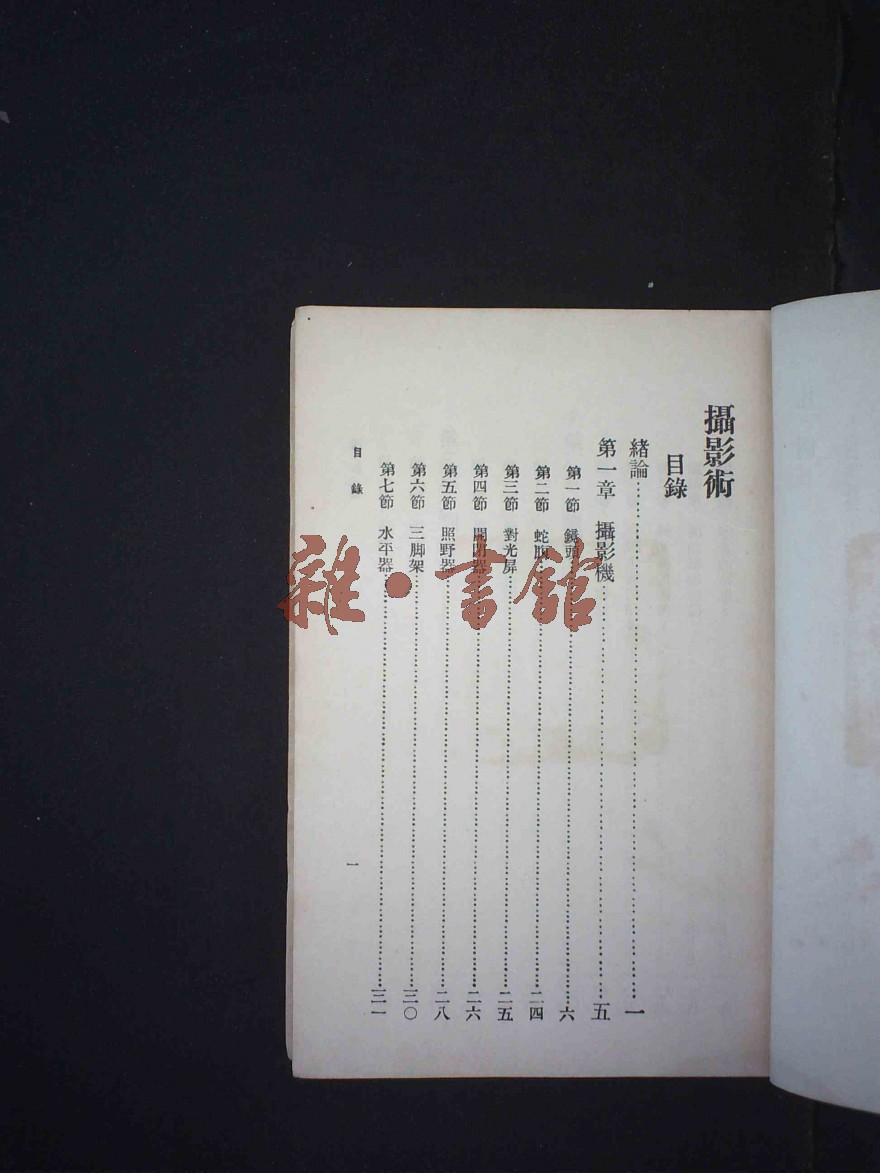 攝影術
目錄
緒論……一
第一章 攝影機……五
第一節 鏡頭……六
第二節 蛇腹……二四
第三節 對光屏……二五
第四節 開閉器……二六
第五節 照野器……二八
第六節 三脚架……三〇
第七節 水平器……三一
目錄
一
雜·書館